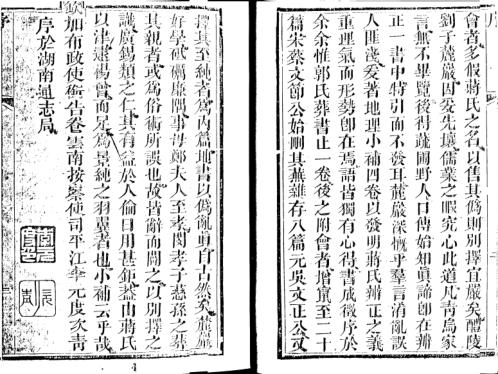 會者多假蔣氏之名以售其偽則別擇宜嚴矣醴陵
劉子麓嚴因爰先壤儒業之暇究心此道凡靑烏家
言無不畢覽後得疏園野人口傳始知眞諦卽在辦
正一書中特引而不發耳麓嚴深慨乎羣言淆亂誤
人匪淺爰著地理小補四卷以發明蔣氏辦正之義
重理氣而形勢卽在焉語皆獨有心得書成徵序於
余余惟郭氏葬書止一卷後之附會者增竄至二十
篇宋蔡文節公始刪其蕪雜存八篇元吳文正公又
擇其至純者為內篇地書以偽亂眞自古然矣麓嚴
好學砥礪廉隅事母鄭夫人至孝閔孝子慈孫之葬
其親者或為俗術所誤也故皆辭而闢之以別擇之
識廣錫類之仁其有益於人倫日用甚鉅盍由蔣氏
以津逮楊曾而兄為景純之羽翼者也小補云乎哉
欽加布政使銜告養雲南按察使司平江李元度次靑
序於湖南通志局